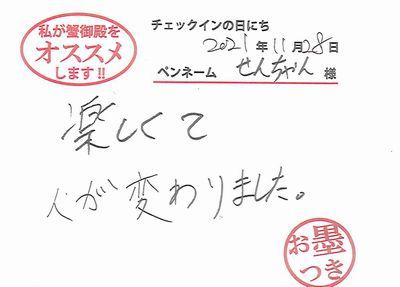 私が蟹御殿を
オススメ
します!!
チェックインの日にち
2021年11月28日
ペンネーム せんちゃん 様
楽しくて
人が変わりました。
お墨
つき